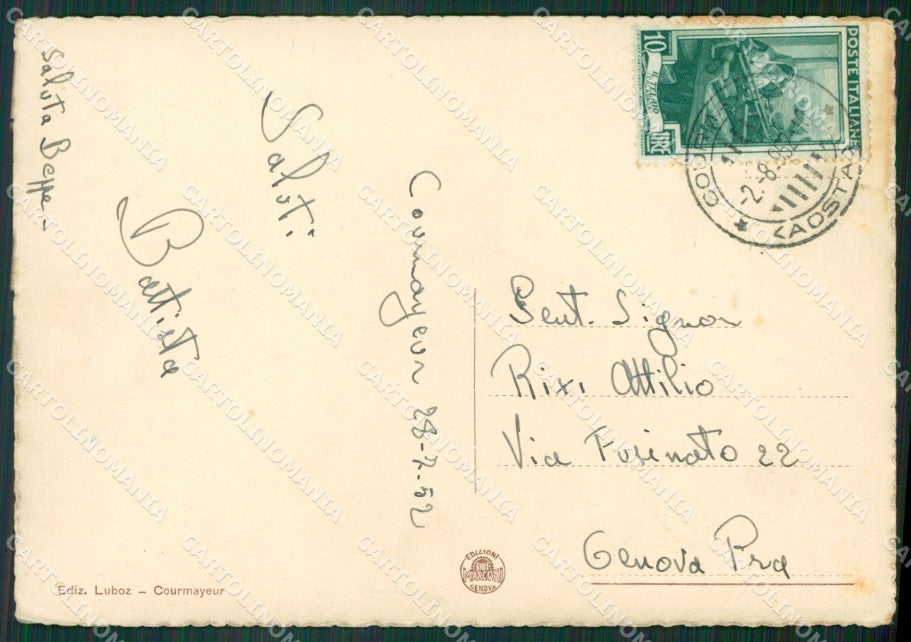 Saluta Beppe
Saluti
Battista
Courmayeur 28-7-52
Gent. Signor
Rixi Attilio
Via Fusinato 22
Genova Pra
POSTE ITALIANE
10
LIRE
-2-8-
(AOSTA)
EDIZIONI
MARCONI
GENOVA
Ediz. Luboz - Courmayeur
CARTOLINOMANIA